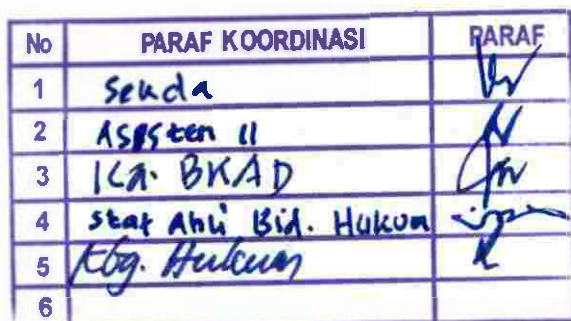 No PARAF KOORDINASI PARAF
1 Sekda
2 Asisten II
3 Ka. BKAD
4 Staf Ahli Bid. Hukum
5 Kbg. Hukum
6